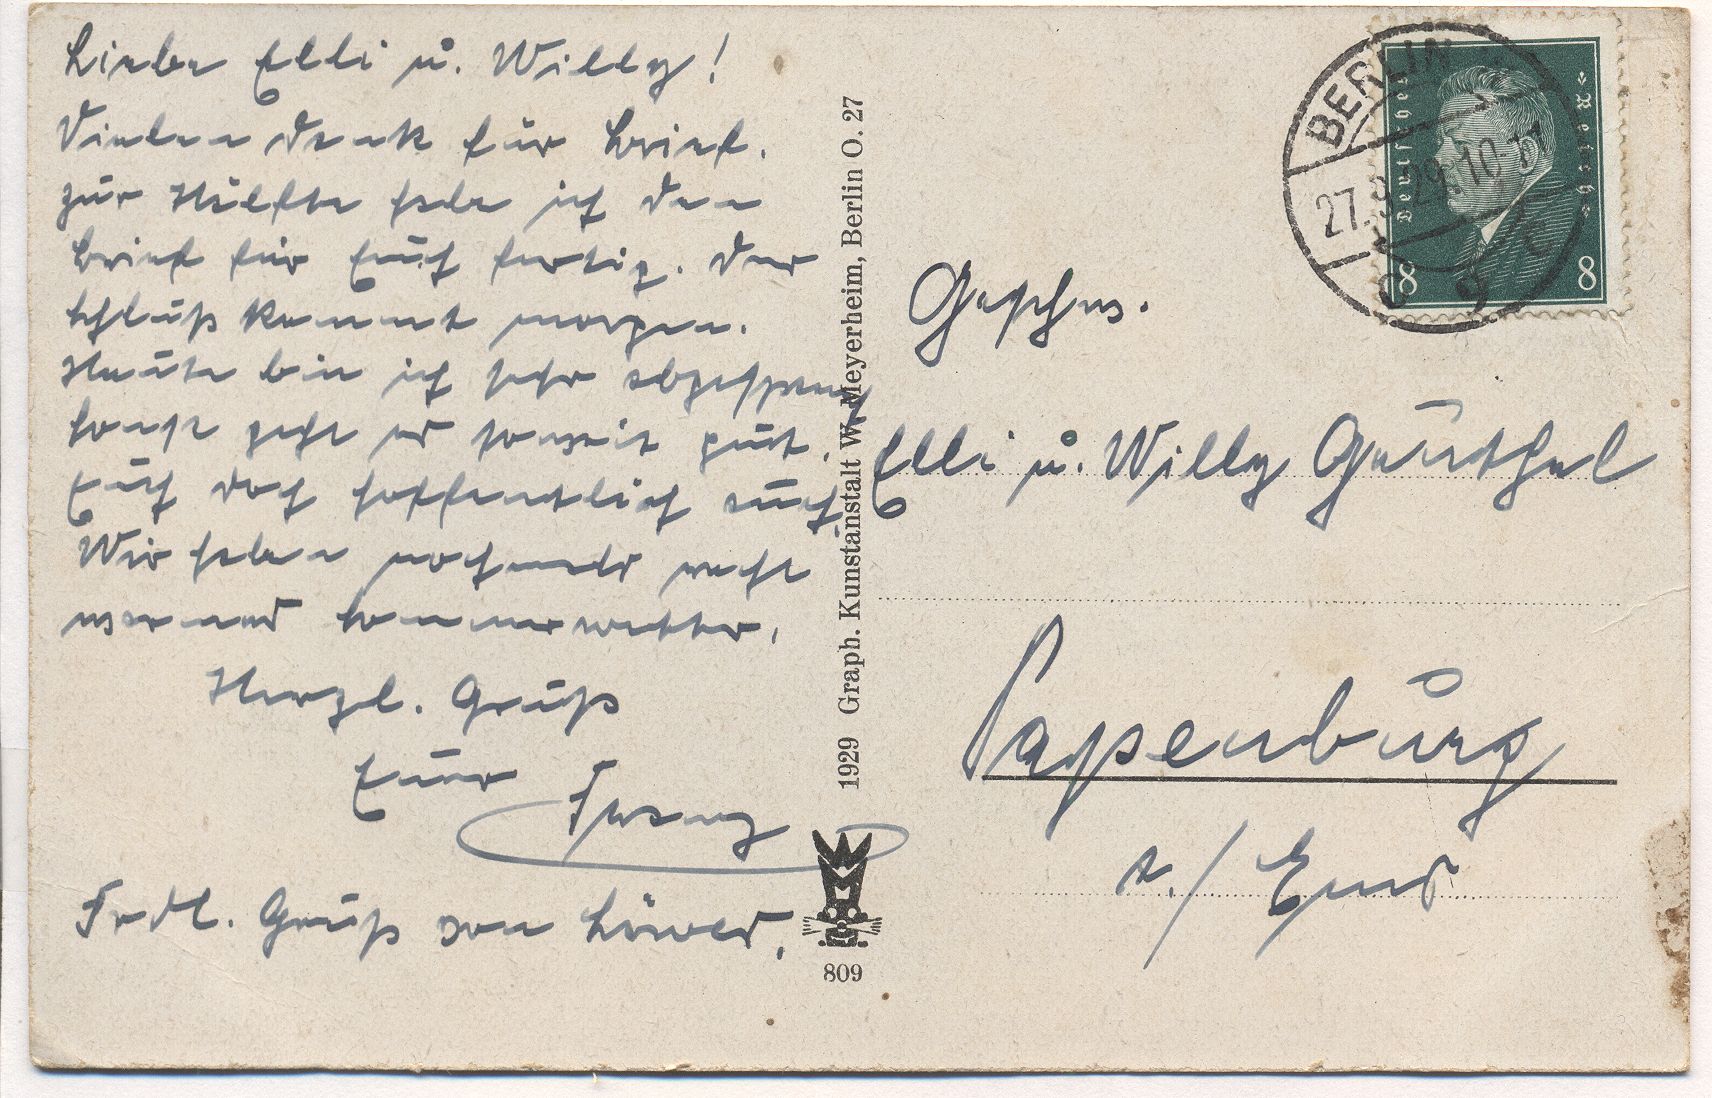 Liebe Elli u. Willy!
Vielen Dank für Brief.
zur Hälfte habe ich den
Brief für Euch fertig. Der
Schluß kommt morgen.
Heute bin ich sehr abgespannt
sonst geht es soweit gut.
Euch doch hoffentlich auch.
Wir haben nochmals recht
warmes Sommerwetter.
Herzl. Gruß
Euer Franz
Frdl. Gruß von
1929 Graph. Kunstanstalt W. Meyerheim, Berlin O. 27
809
BERLIN
27.9.29.10-11
C
9
C
Deutsches Reich
8 8
Geschw.
Elli u. Willy Gäuthel
Papenburg
a./Ems